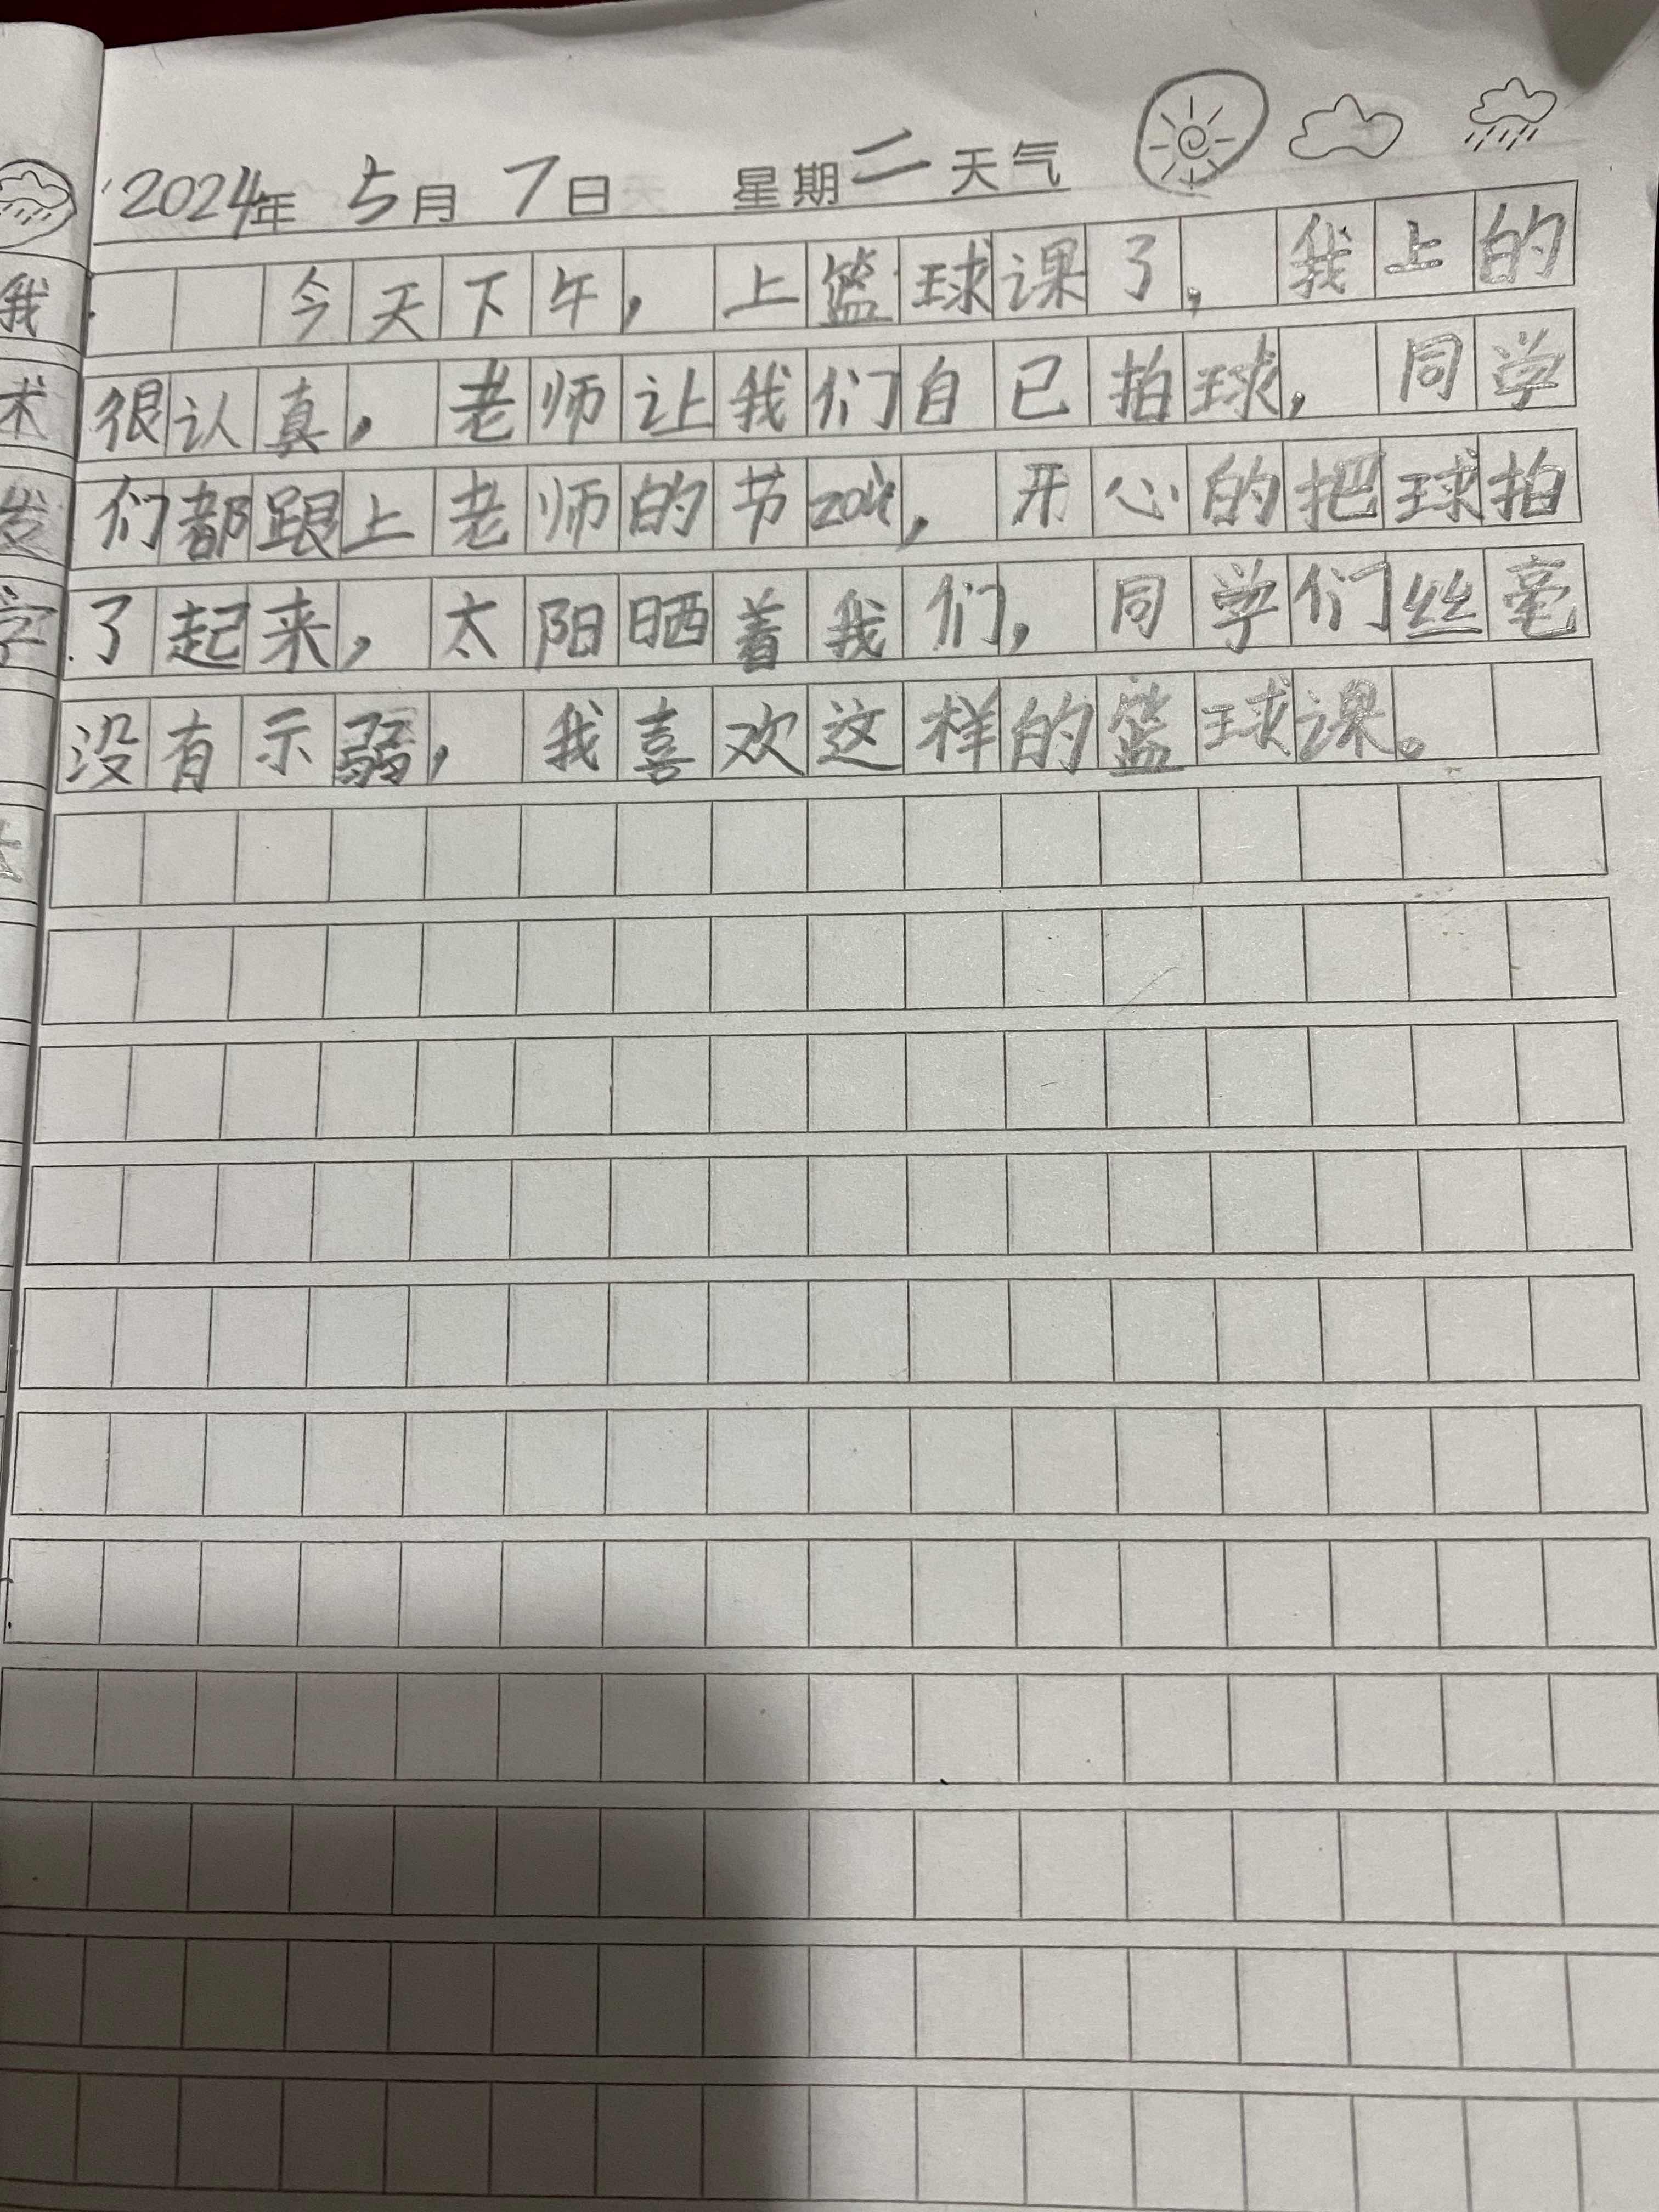 2024年 5月 7日 星期二 天气
今天下午，上篮球课了，我上的
很认真，老师让我们自己拍球，同学
们都跟上老师的节zòu，开心的把球拍
了起来，太阳晒着我们，同学们丝毫
没有示弱，我喜欢这样的篮球课。
我
术
发
字